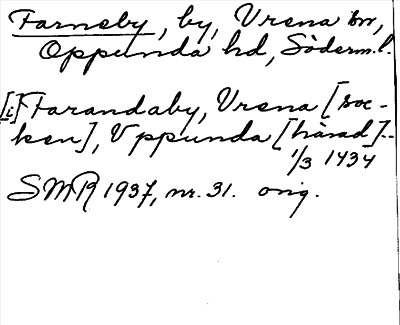 Farneby, by, Vrena sn,
Oppunda hd, Söderm.l.
[i] Ffarandaby, Vrena [soc-
ken], Vppunda [härad]..
1/3 1434
SMR 1937, nr. 31. orig.